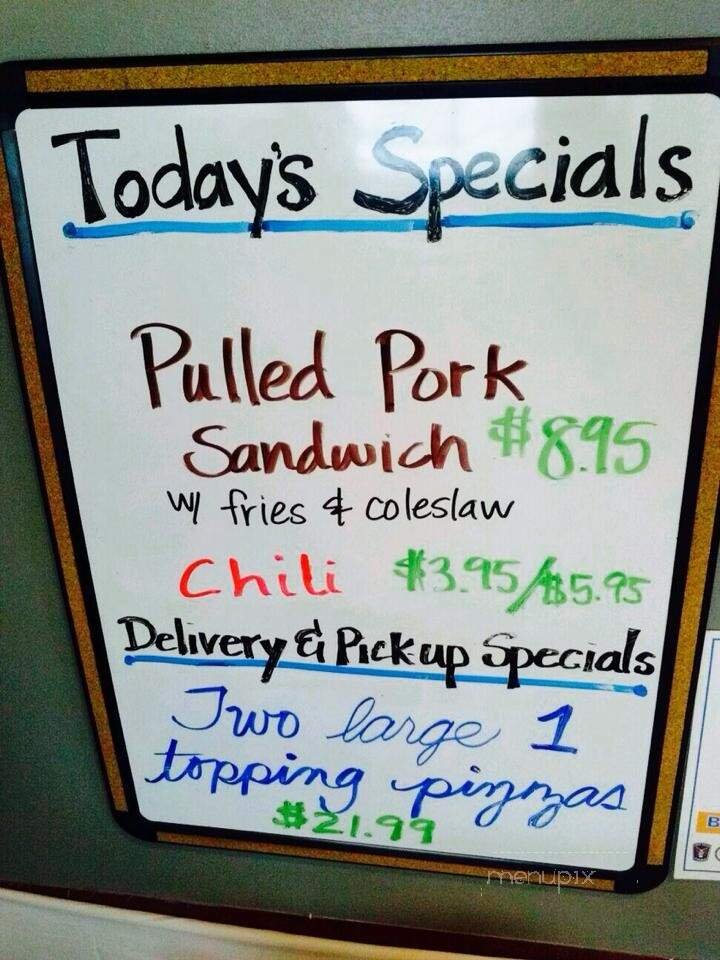 Today's Specials
Pulled Pork
Sandwich $8.95
w/ fries & coleslaw
Chili $3.95/$5.95
Delivery & Pickup Specials
Two large 1
topping pizzas
$21.99
menupix
B